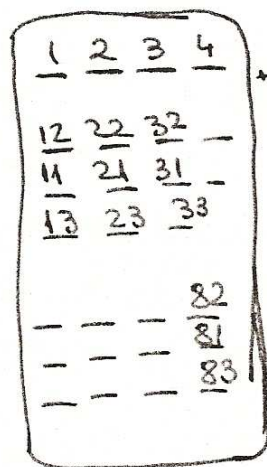 1 2 3 4
12 22 32 _
11 21 31 _
13 23 33
_ _ _ 82
_ _ _ 81
_ _ _ 83